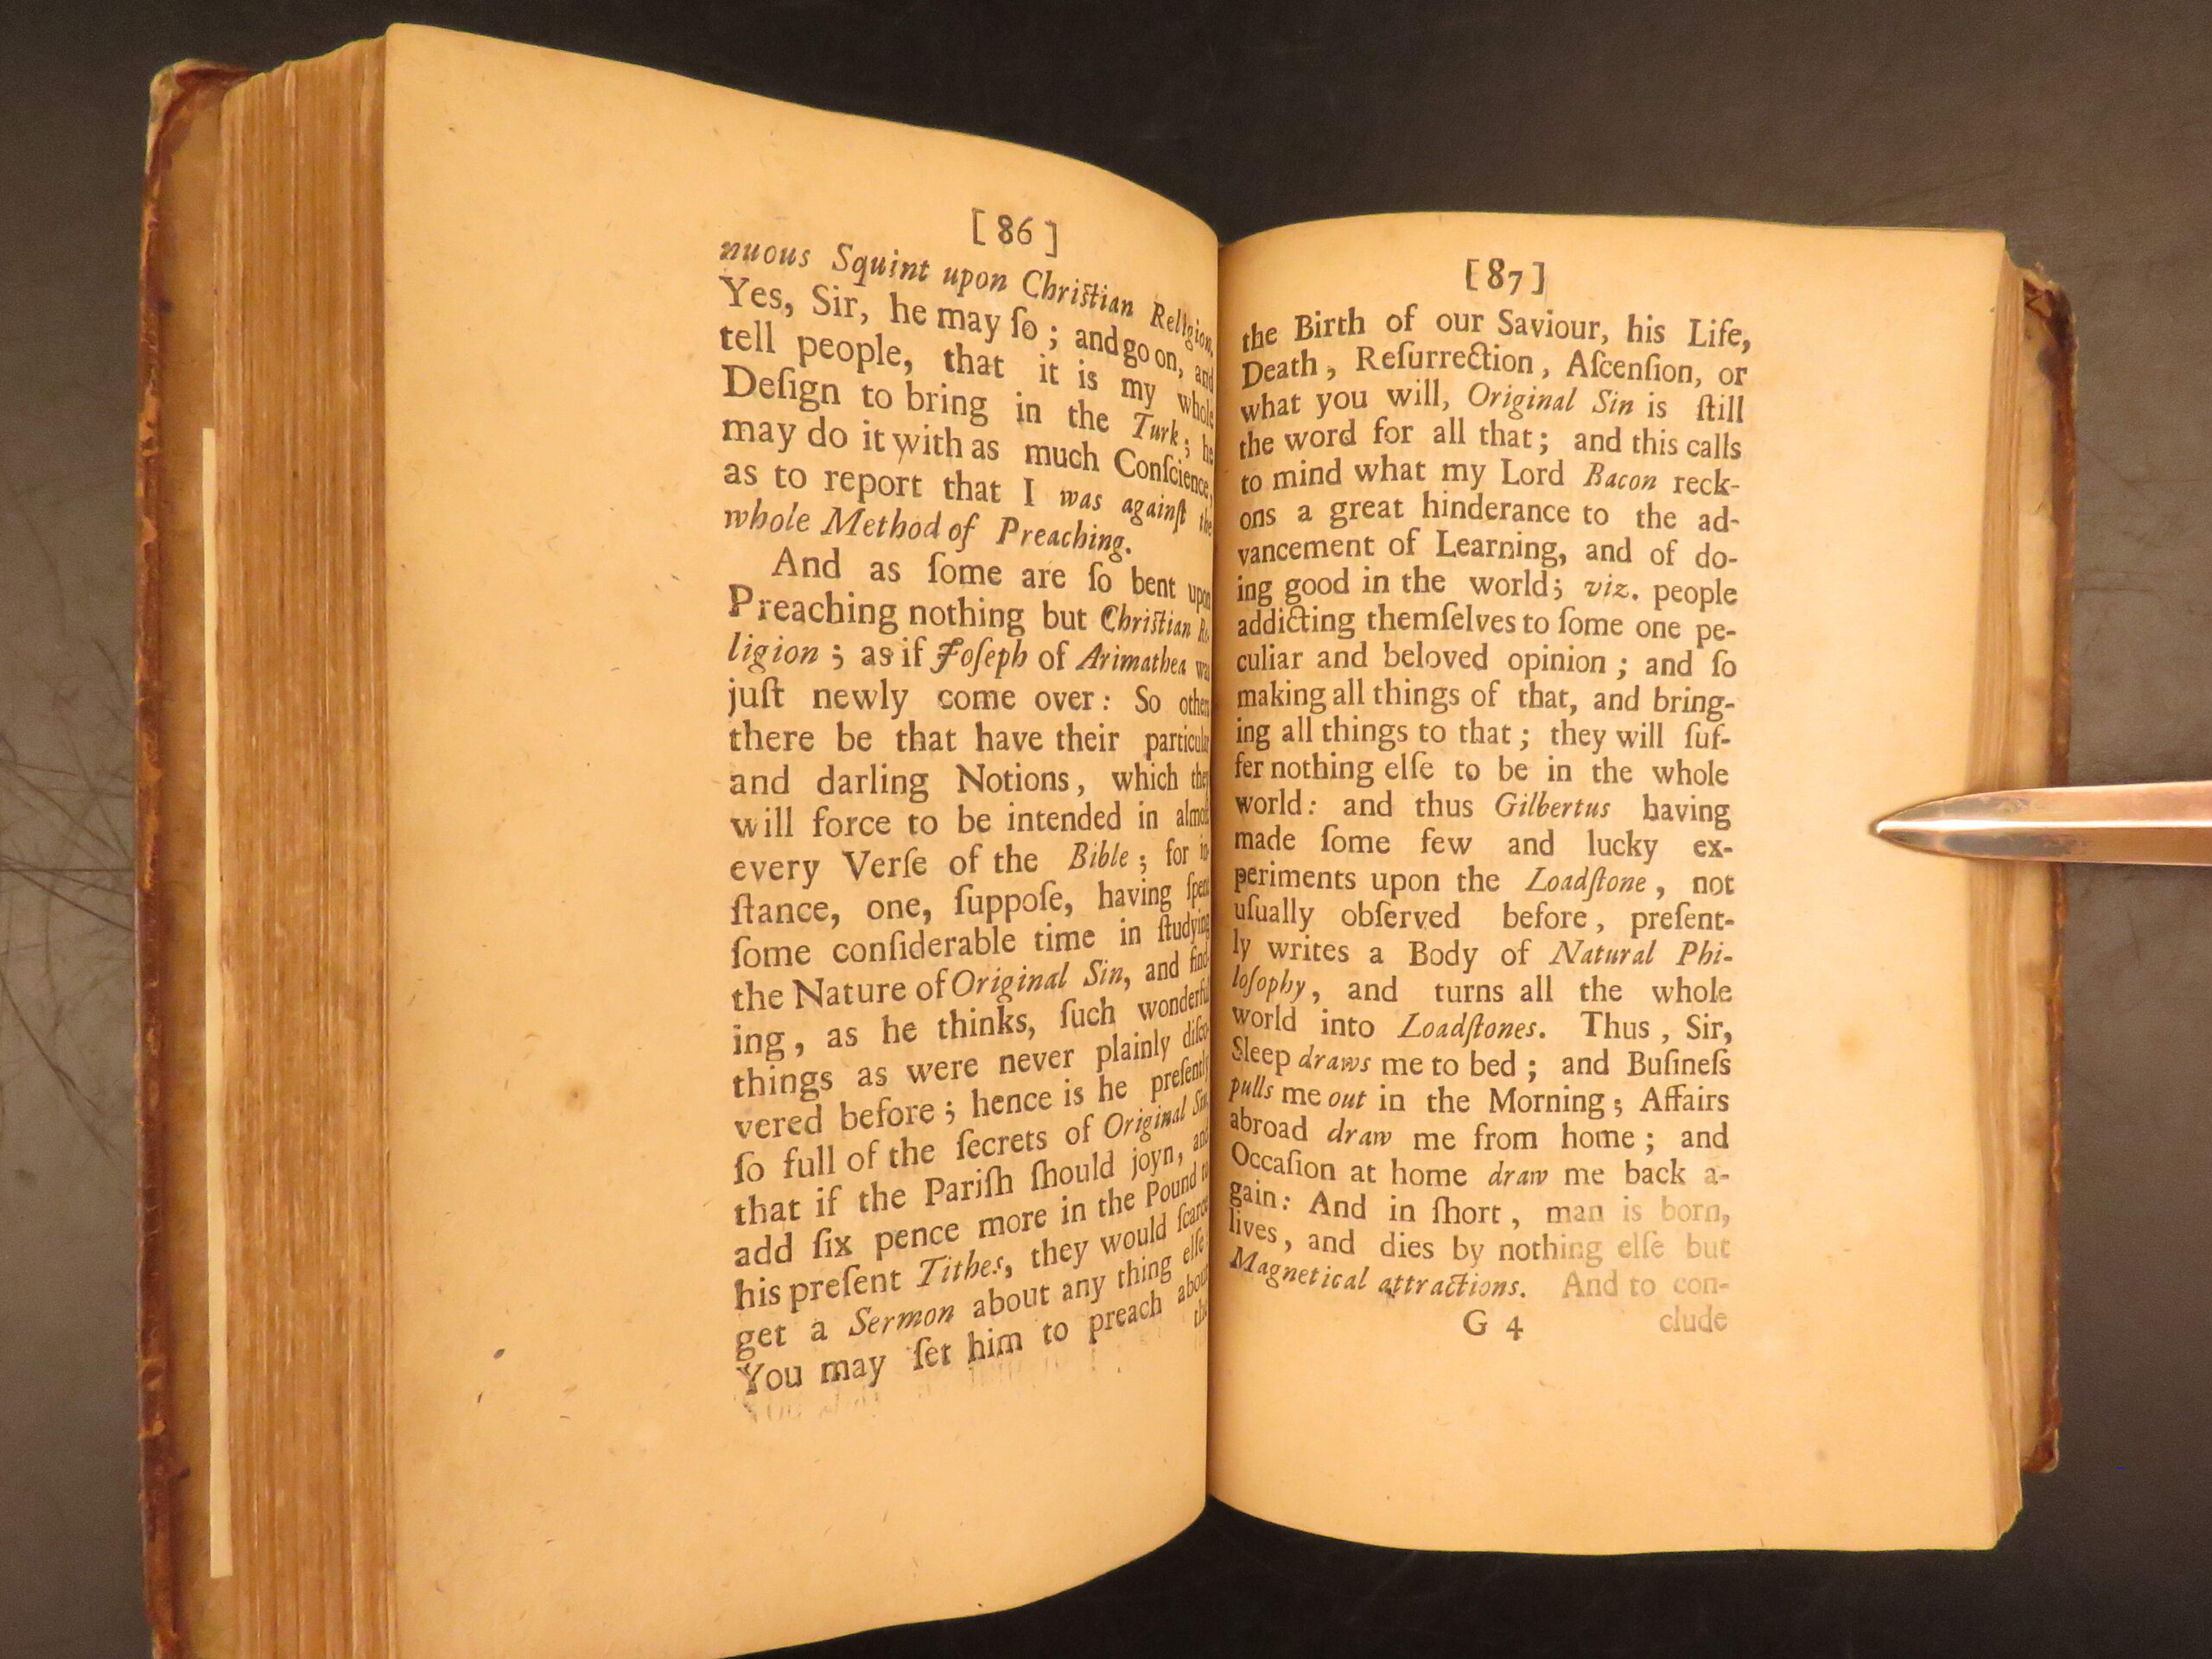 [ 86 ]
nuous Squint upon Christian Religion.
Yes, Sir, he may ſo ; and go on, and
tell people, that it is my whole
Deſign to bring in the Turk ; he
may do it with as much Conſcience,
as to report that I was againſt the
whole Method of Preaching.
And as ſome are ſo bent upon
Preaching nothing but Christian Re-
ligion ; as if Joſeph of Arimathea was
juſt newly come over : So others
there be that have their particular
and darling Notions, which they
will force to be intended in almoſt
every Verſe of the Bible ; for in-
ſtance, one, ſuppoſe, having ſpent
ſome conſiderable time in ſtudying
the Nature of Original Sin, and find-
ing, as he thinks, ſuch wonderful
things as were never plainly diſco-
vered before ; hence is he preſently
ſo full of the ſecrets of Original Sin,
that if the Pariſh ſhould joyn, and
add ſix pence more in the Pound to
his preſent Tithes, they would ſcarce
get a Sermon about any thing elſe.
You may ſet him to preach about
the
[ 87 ]
the Birth of our Saviour, his Life,
Death, Reſurrection, Aſcenſion, or
what you will, Original Sin is ſtill
the word for all that ; and this calls
to mind what my Lord Bacon reck-
ons a great hinderance to the ad-
vancement of Learning, and of do-
ing good in the world; viz. people
addicting themſelves to ſome one pe-
culiar and beloved opinion ; and ſo
making all things of that, and bring-
ing all things to that ; they will ſuf-
fer nothing elſe to be in the whole
world : and thus Gilbertus having
made ſome few and lucky ex-
periments upon the Loadſtone, not
uſually obſerved before, preſent-
ly writes a Body of Natural Phi-
loſophy, and turns all the whole
world into Loadſtones. Thus, Sir,
Sleep draws me to bed ; and Buſineſs
pulls me out in the Morning ; Affairs
abroad draw me from home ; and
Occaſion at home draw me back a-
gain : And in ſhort, man is born,
lives, and dies by nothing elſe but
Magnetical attractions. And to con-
G 4 clude